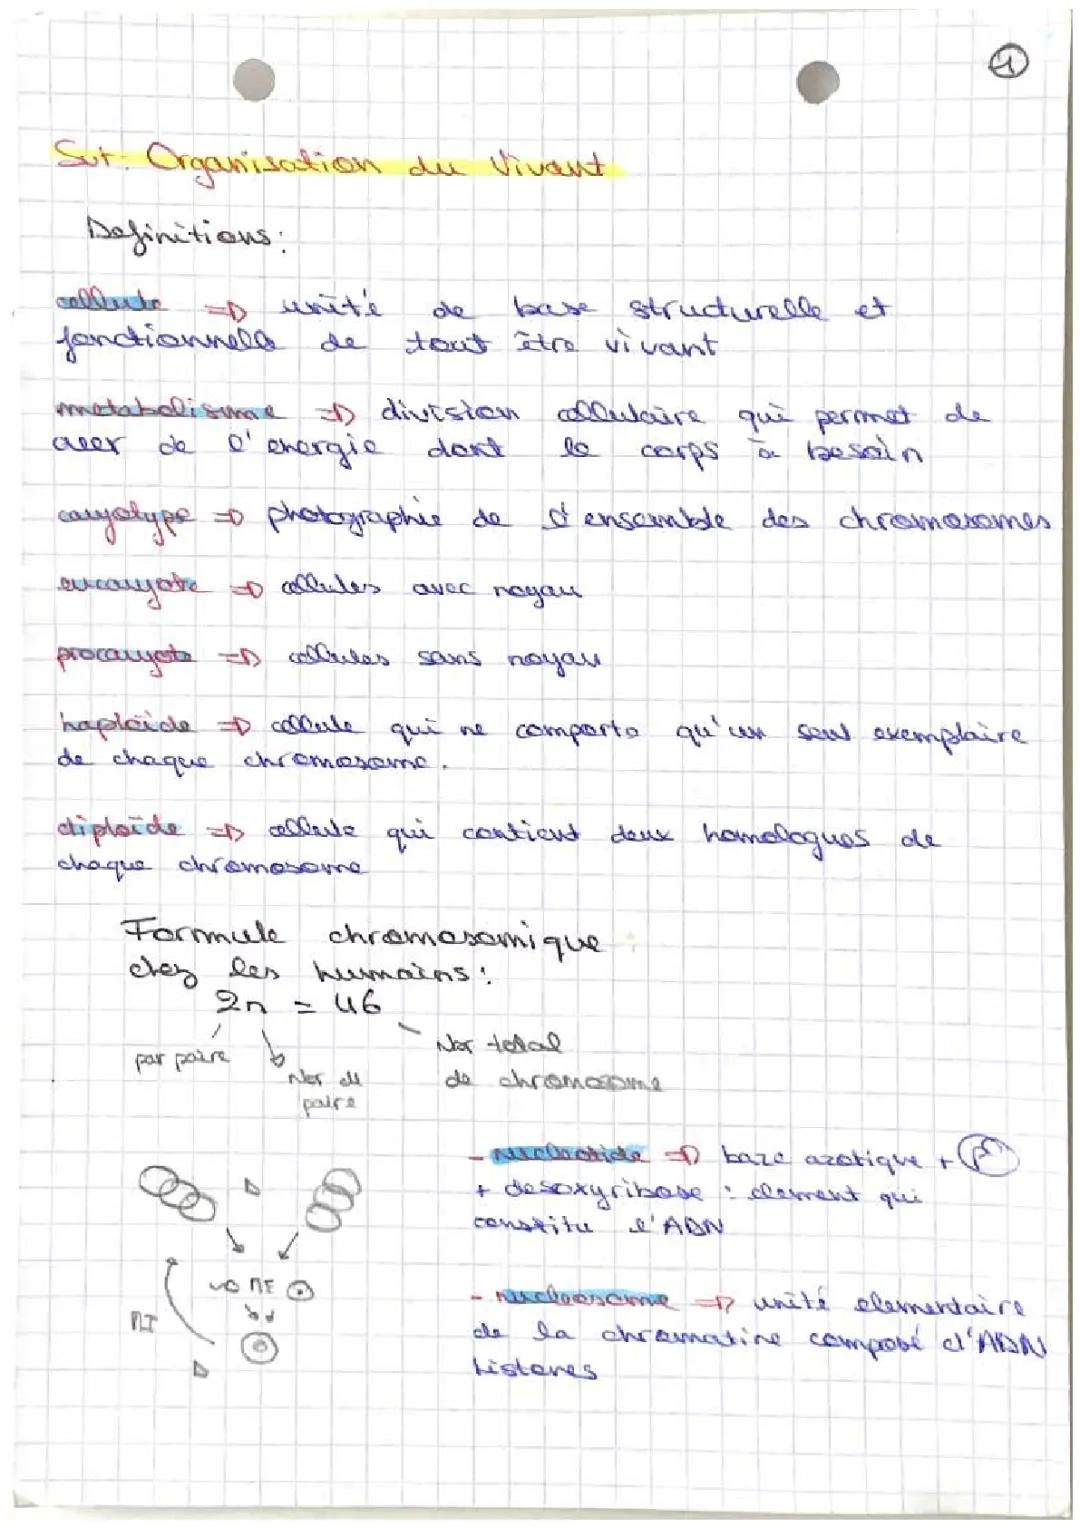 1
Svt: Organisation du Vivant
Définitions:
cellule => unité de base structurelle et
fonctionnelle de tout être vivant
metabolisme => division cellulaire qui permet de
creer de l'energie dont le corps à besoin
caryotype => photographie de l'ensemble des chromosomes
eucaryote => cellules avec noyau
procaryote => cellules sans noyau
haploïde => cellule qui ne comporte qu'un seul exemplaire
de chaque chromosome.
diploïde => cellule qui contient deux homologues de
chaque chromosome
Formule chromosomique
chez les humains:
2n = 46
par paire
Nbr de
paire
Nbr total
de chromosome
- nucleotide => baze azotique + P
+ desoxyribose : element qui
constitu l'ADN
ME
MI
- nucleosome => unité elementaire
de la chromatine composé d'ADN
histones